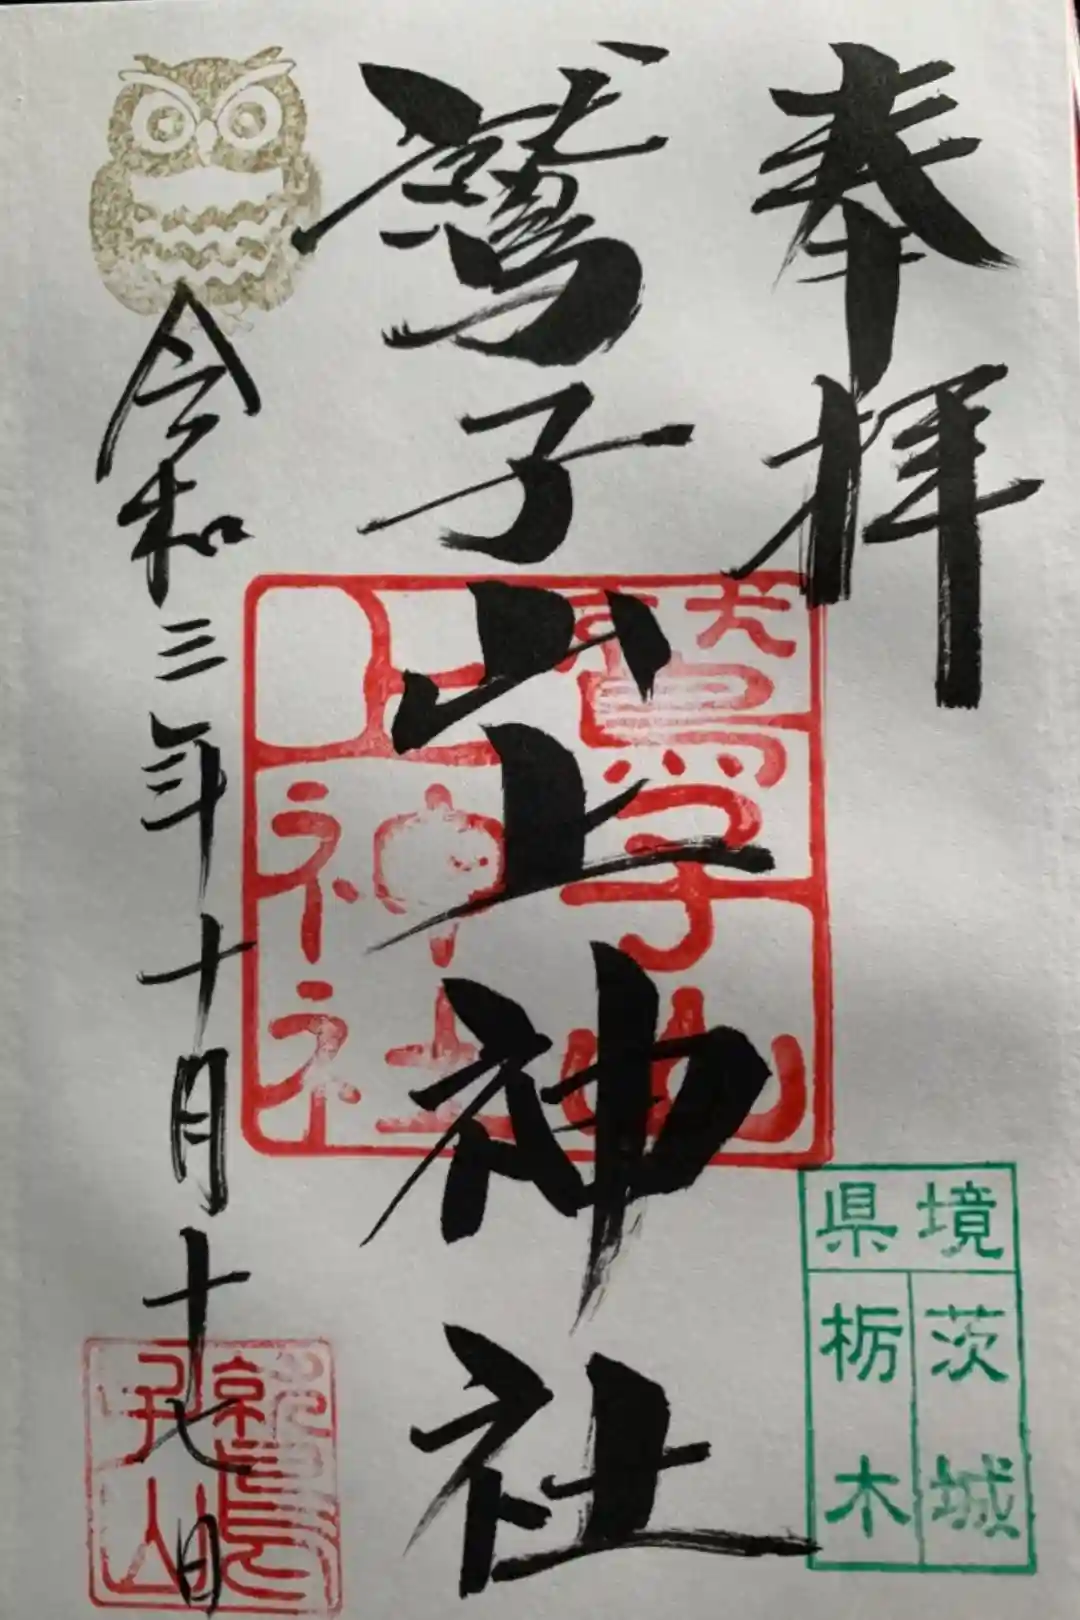 奉拝
鷲子山上神社
令和三年十月十七日
鷲子山
上神社
県境
茨城
栃木
鷲
子山